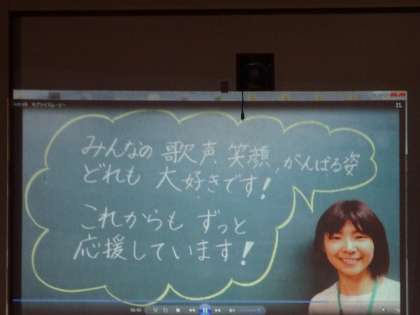 みんなの 歌声、笑顔、がんばる姿
どれも 大好きです!
これからも ずっと
応援しています!